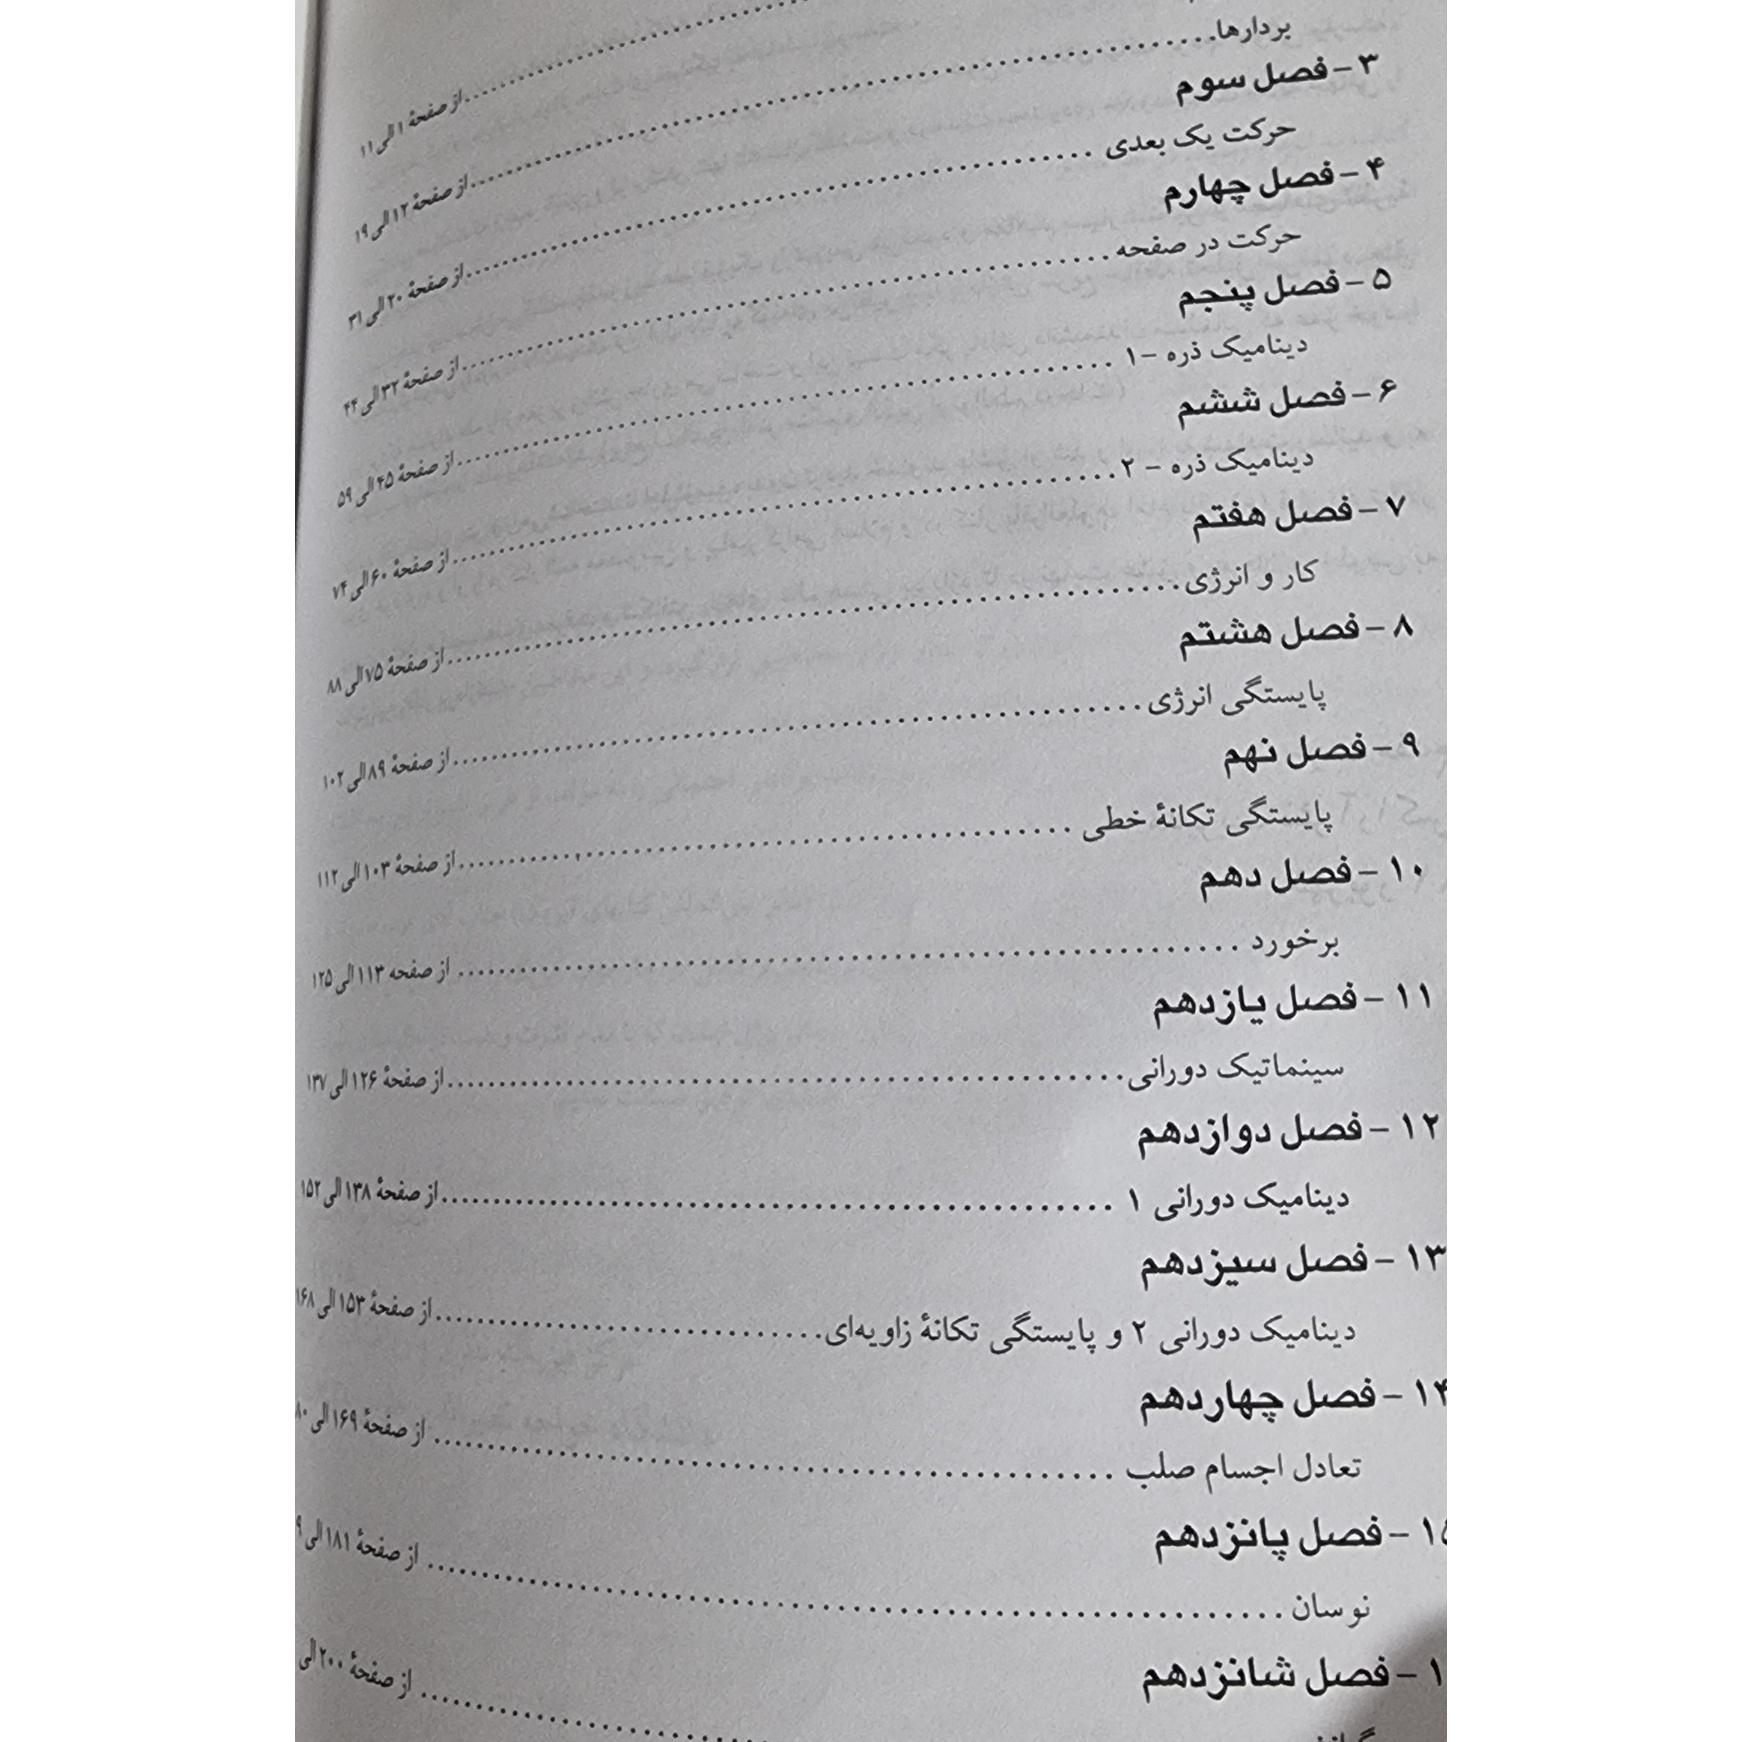 از صفحهٔ ۱ الی ۱۱
بردارها از صفحهٔ ۱۲ الی ۱۹
۳ - فصل سوم
حرکت یک بعدی از صفحهٔ ۲۰ الی ۳۱
۴ - فصل چهارم
حرکت در صفحه از صفحهٔ ۳۲ الی ۴۴
۵ - فصل پنجم
دینامیک ذره - ۱ از صفحهٔ ۴۵ الی ۵۹
۶ - فصل ششم
دینامیک ذره - ۲ از صفحهٔ ۶۰ الی ۷۴
۷ - فصل هفتم
کار و انرژی از صفحهٔ ۷۵ الی ۸۸
۸ - فصل هشتم
پایستگی انرژی از صفحهٔ ۸۹ الی ۱۰۲
۹ - فصل نهم
پایستگی تکانهٔ خطی از صفحهٔ ۱۰۳ الی ۱۱۲
۱۰ - فصل دهم
برخورد از صفحه ۱۱۳ الی ۱۲۵
۱۱ - فصل یازدهم
سینماتیک دورانی از صفحهٔ ۱۲۶ الی ۱۳۷
۱۲ - فصل دوازدهم
دینامیک دورانی ۱ از صفحهٔ ۱۳۸ الی ۱۵۲
۱۳ - فصل سیزدهم
دینامیک دورانی ۲ و پایستگی تکانهٔ زاویه‌ای از صفحهٔ ۱۵۳ الی ۱۶۸
۱۴ - فصل چهاردهم
تعادل اجسام صلب از صفحهٔ ۱۶۹ الی
۱۵ - فصل پانزدهم
نوسان از صفحهٔ ۱۸۱ الی
- فصل شانزدهم
از صفحهٔ ۲۰۰ الی